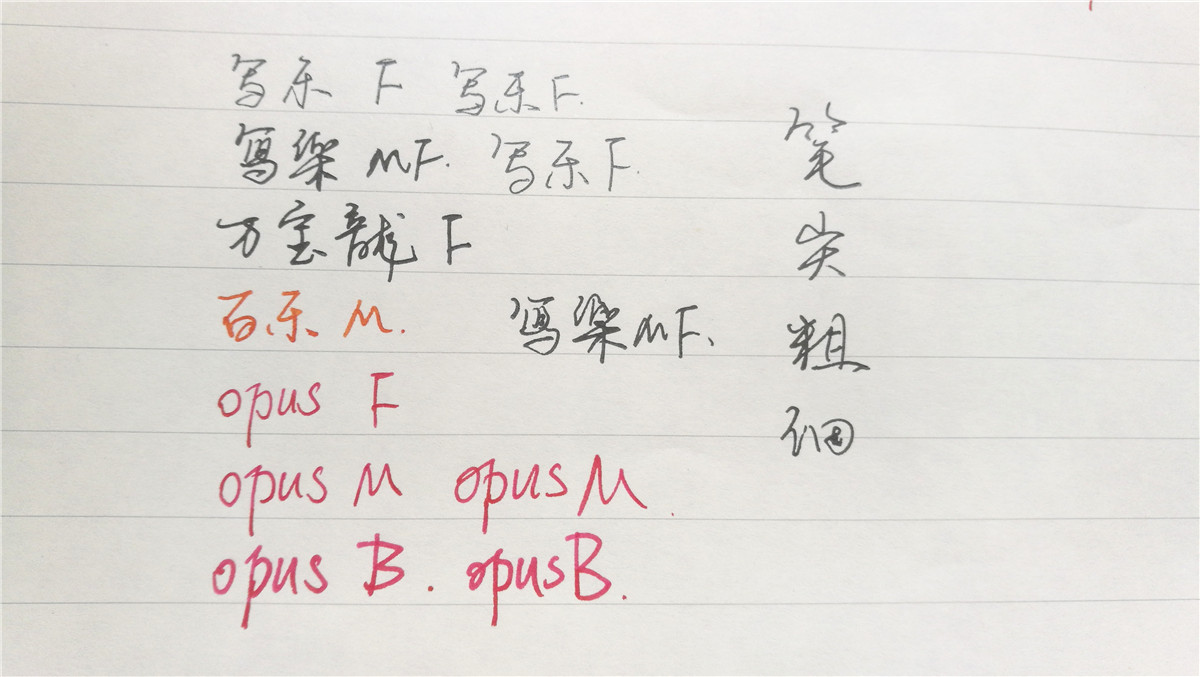 写乐 F 写乐 F.
寫樂 MF. 写乐 F.
万宝龍 F
百乐 M.
寫樂 MF.
opus F
opus M opus M.
opus B. opus B.
笔尖粗细